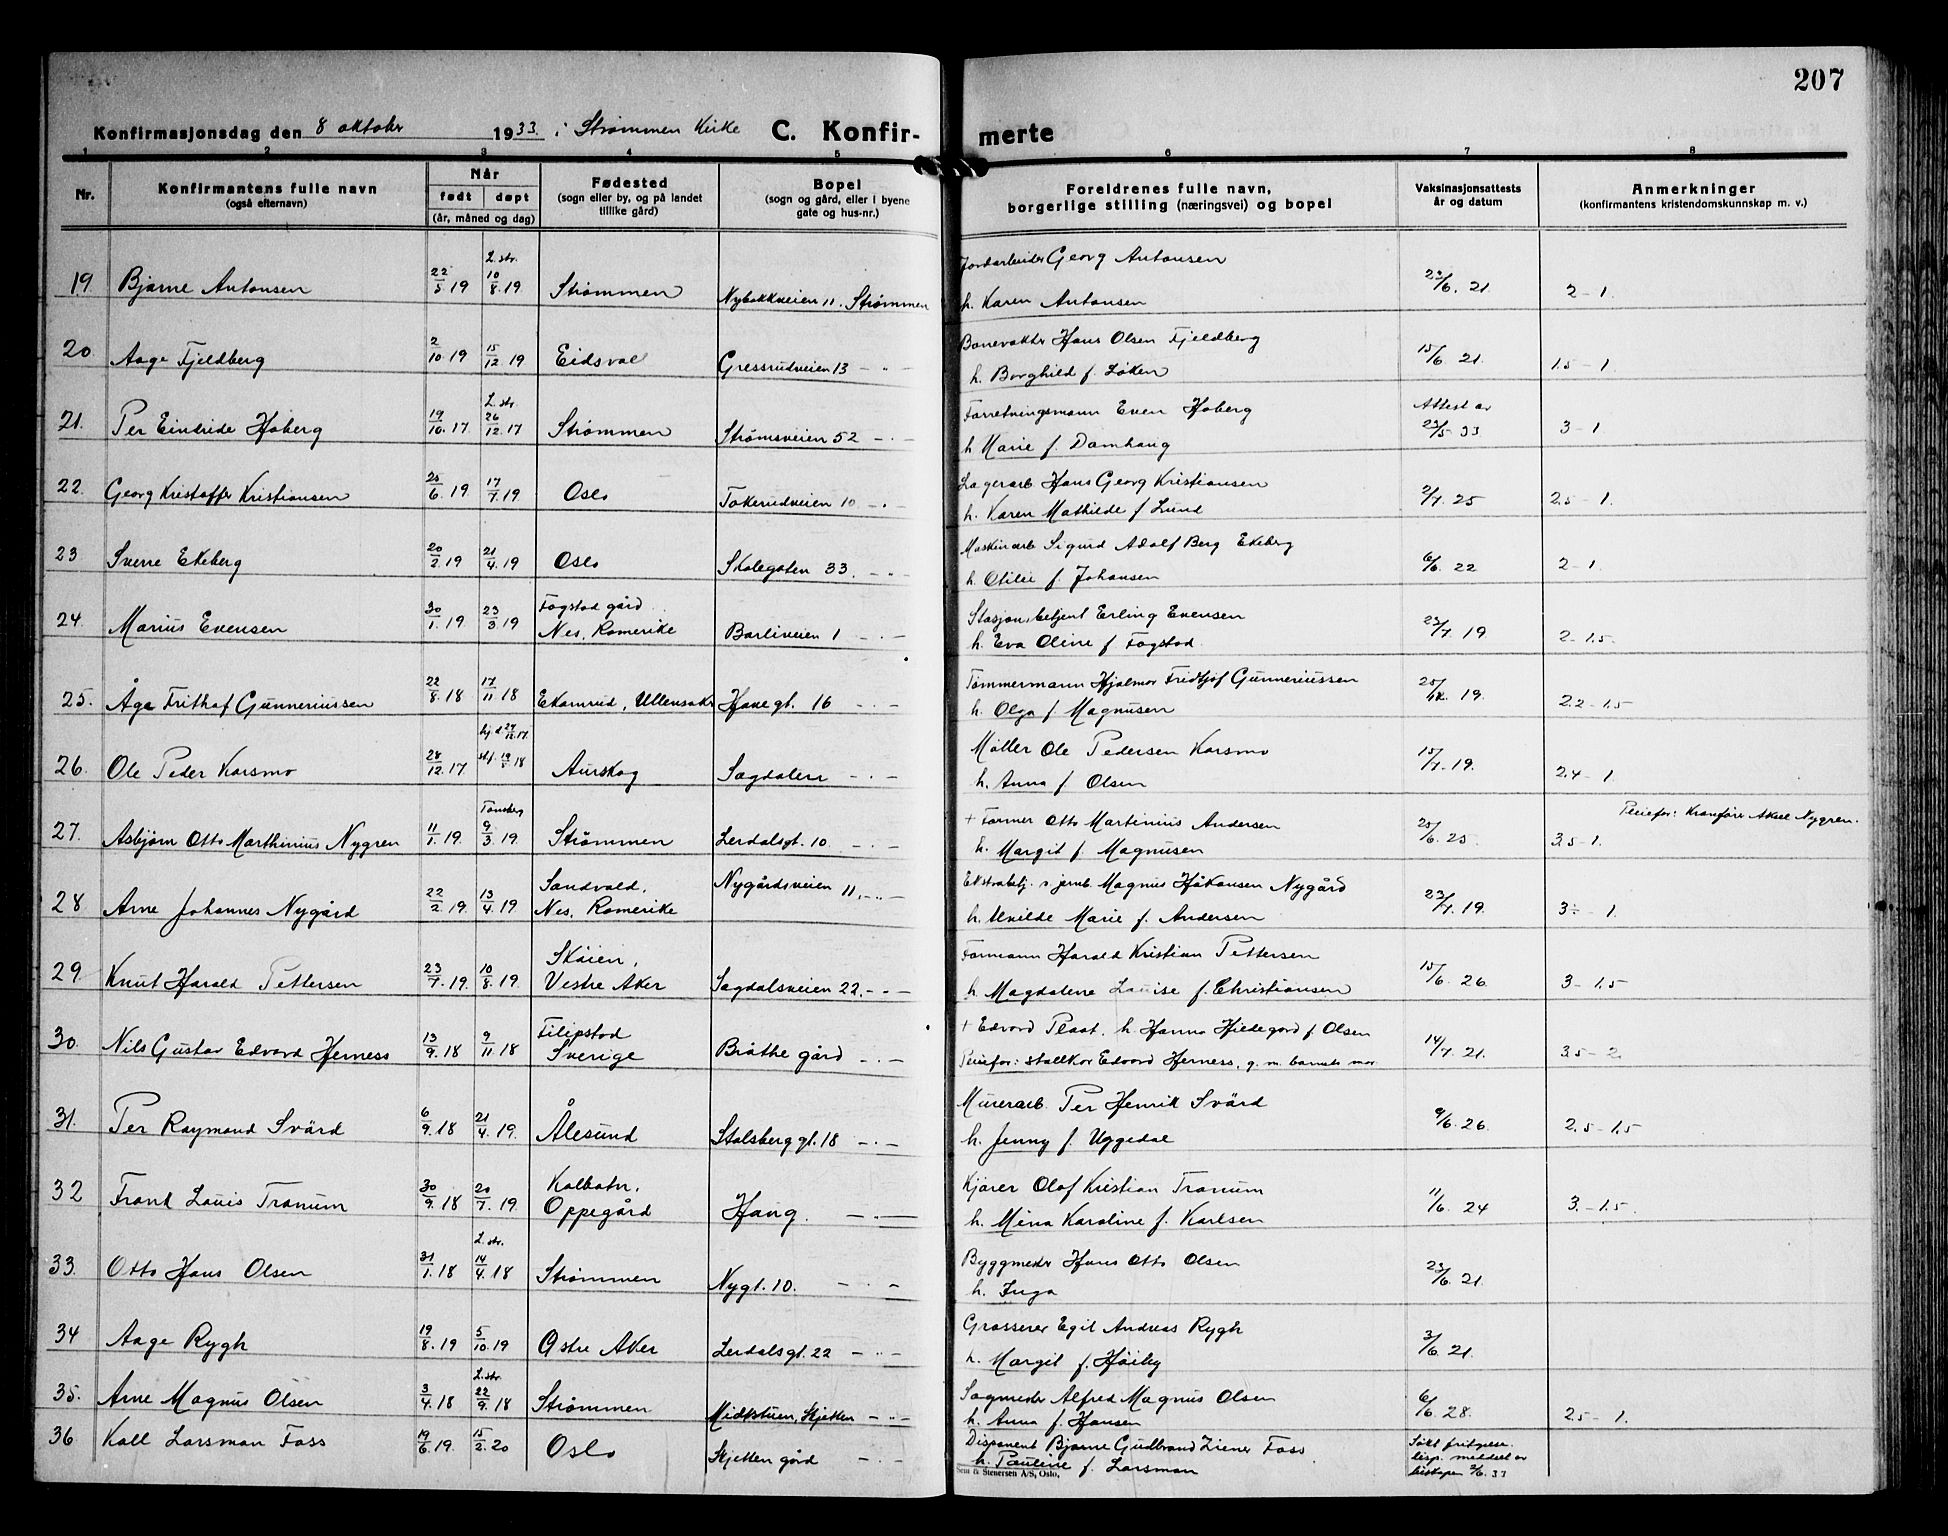 207
Konfirmasjonsdag den 8 oktobr 1933. i Strømmen Kirke C. Konfir- merte
1 2 3 4 5 6 7 8
Nr.
Konfirmantens fulle navn
(også efternavn)
Når
født døpt
(år, måned og dag)
Fødested
(sogn eller by, og på landet
tillike gård)
Bopel
(sogn og gård, eller i byene
gate og hus-nr.)
Foreldrenes fulle navn,
borgerlige stilling (næringsvei) og bopel
Vaksinasjonsattests
år og datum
Anmerkninger
(konfirmantens kristendomskunnskap m. v.)
L. str.
19 Bjarne Antonsen 22/5 19 10/8. 19 Strømmen Nybakkveien 11. Strømmen Jordarbeider Georg Antonsen
h. Karen Antonsen 23/6. 21 2 - 1.
20. Aage Fjeldberg 2/10. 19 15/12 19 Eidsvol Gressrudveien 13 — " — Banevokter Hans Olsen Fjeldberg
h. Borghild f. Løken 15/6 21. 1.5 - 1
L. str
21. Per Eindride Hoberg 19/10. 17 26/12. 17 Strømmen Strømsveien 52 — " — Forretningsmann Even Hoberg
h Marie f. Damhaug Attest av 23/5 33 3 - 1
22. Georg Kristoffer Kristiansen 25/6. 19 17/7. 19 Oslo Tokerudveien 10 — " — Lagerarb Hans Georg Kristiansen
h. Karen Mathilde f Lund 2/7. 25 2.5 - 1.
23 Sverre Ekeberg 20/2. 19 21/4. 19 Oslo Skolegaten 33. — " — Maskinarb Sigurd Adolf Berg Ekeberg
h. Otilie f. Johansen 6/6. 22 2 - 1.
24. Marius Evensen 30/1. 19 23/3 19 Fogstad gård
Nes, Romerike Barliveien 1 — " — Stasjonsbetjent Erling Evensen
h. Eva Oline f Fogstad. 23/7. 19 2 - 1.5.
25. Åge Frithof Gunneriussen 22/8. 18 17/11 18 Ekornrud, Ullensaker Hanegt. 16 — " — Tømmermann Hjalmar Fridtjof Gunneriussen
h. Olga f. Magnusen 19. 2.2 - 1.5
hj. d. 29/12. 17.
26. Ole Peder Karsmo 28/12. 17 18 Aurskog Sagdalen — " — Møller Ole Pedersen Karsmo
h. Anna f. Olsen 15/7. 19. 2.4 - 1.
Tønsberg
27. Asbjørn Otto Marthinius Nygren 11/1. 19 9/3. 19 Strømmen Lerdalsgt. 10 — " — + Former Otto Martinius Andersen
h. Margit f. Magnusen 25/6. 25. 3.5 - 1. Pleiefor: Kranfører Aksel Nygren.
28. Arne Johannes Nygård 22/2. 19. 13/4. 19 Sandvold,
Nes, Romerike Nygårdsveien 11. — " — Ekstrabetj. v. jernb. Magnus Håkonsen Nygård
h. Unilde Marie f. Andersen 23/7. 19. 3 ÷ - 1.
29. Knut Harald Pettersen 23/7. 19. 10/8. 19 Skøien,
Vestre Aker Sagdalsveien 22. — " — Formann Harald Kristian Pettersen
h. Magdalene Louise f. Christiansen 15/6. 26. 3 - 1.5
30. Nils Gustav Edvard Herness 13/9. 18 9/11. 18 Filipstad
Sverige Bråthe gård — " — + Edvard Plaat, h. Hanna Hildegard f. Olsen
Pleiefor: stallkar Edvard Herness, g. m. barnets mor 14/7. 21. 3.5 - 2.
31. Per Raymond Svärd 6/9. 18 21/4. 19. Ålesund Stalsberggt. 18 — " — Murerarb. Per Henrik Svärd
h. Jenny f. Uggedal 9/6. 26. 2.5 - 1.5
32 Frank Louis Tranum 30/9. 18 20/7. 19. Kolbotn,
Oppegård Haug. — " — Kjører Olaf Kristian Tranum
h. Mina Karoline f. Karlsen 11/6. 24 3. - 1.5.
L. str.
33. Otto Hans Olsen 31/1. 18 14/4. 18 Strømmen Nygt. 10. — " — Byggmester Hans Otto Olsen
h. Inga 23/6. 21.
34 Aage Rygh 19/8. 19 5/10. 19 Østre Aker Lerdalsgt. 22 — " — Grosserer Egil Andreas Rygh
h. Margit f. Høiby 3/6. 21.
L. str
35. Arne Magnus Olsen 3/4. 18 22/9. 18 Strømmen Midtstuen, Skjetten — " — Sagmester Alfred Magnus Olsen
h. Anna f. Hansen 6/6. 28. 2.5 - 1.
36 Kall Larsman Foss 19/6. 19. 15/2. 20 Oslo Skjetten gård — " — Disponent Bjarne Gudbrand Ziener Foss
h. Pauline f. Larsman Søkt
disp. meddelt av
biskopen 2/6. 33
Sem & Stenersen A/S, Oslo,